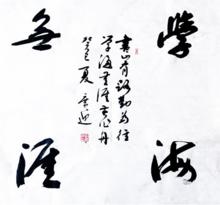 學海
無涯
書山有路勤为径
学海无涯苦作舟
癸巳夏